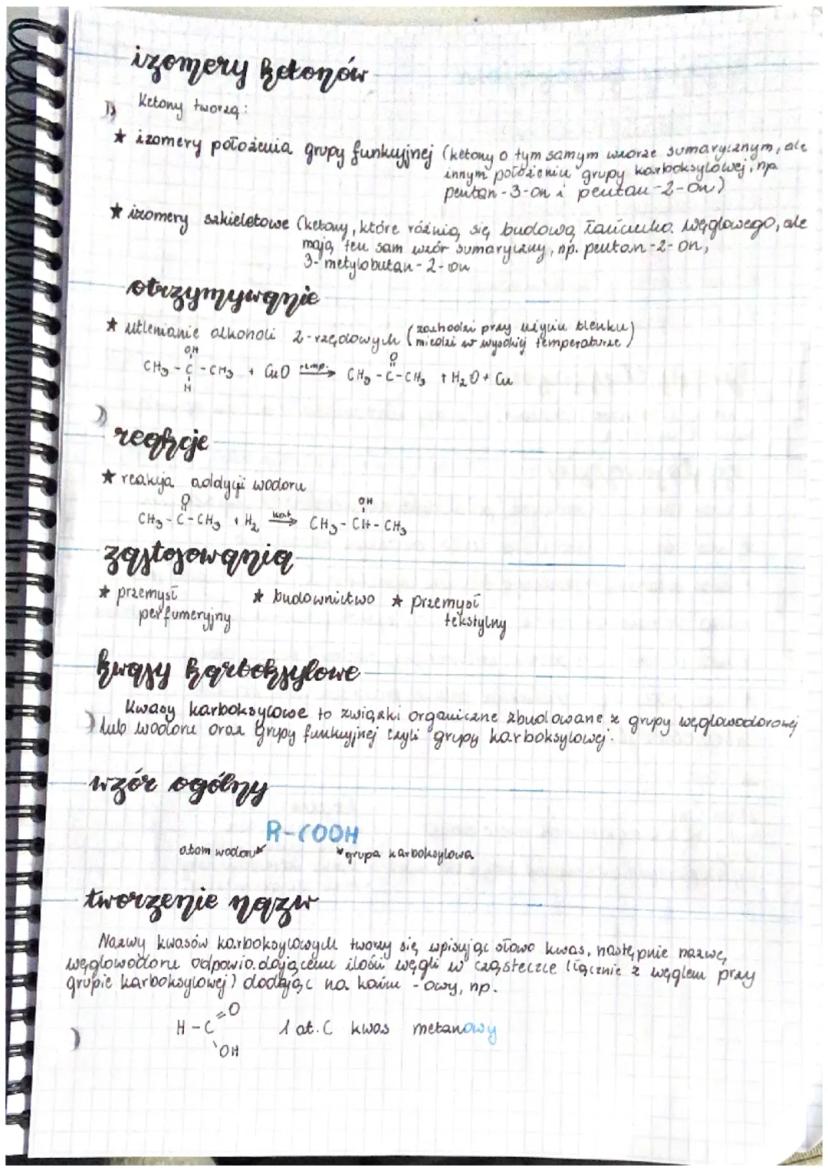 izomery ketonów
Ketony tworzą:
★ izomery położenia grupy funkcyjnej (ketony o tym samym wzorze sumarycznym, ale
innym położeniu grupy karboksylowej, np.
pentan-3-on i pentan-2-on)
★ izomery szkieletowe (ketony, które różnią się budową łańcucha węglowego, ale
mają ten sam wzór sumaryczny, np. pentan-2-on,
3-metylobutan-2-on
otrzymywanie
★ utlenianie alkoholi 2-rzędowych (zachodzi przy użyciu tlenku
miedzi w wysokiej temperaturze)
OH O
CH3 - C - CH3 + CuO temp. → CH3 - C - CH3 + H2O + Cu
H
reakcje
★ reakcja addycji wodoru
O OH
CH3 - C - CH3 + H2 kat. → CH3 - CH - CH3
zastosowania
★ przemysł ★ budownictwo ★ przemysł
perfumeryjny tekstylny
kwasy karboksylowe
Kwasy karboksylowe to związki organiczne zbudowane z grupy węglowodorowej
lub wodoru oraz grupy funkcyjnej czyli grupy karboksylowej.
wzór ogólny
R-COOH
atom wodoru grupa karboksylowa
tworzenie nazw
Nazwy kwasów karboksylowych tworzy się wpisując słowo kwas, następnie nazwę
węglowodoru odpowiadającemu ilości węgli w cząsteczce (łącznie z węglem przy
grupie karboksylowej) dodając na końcu -owy, np.
=O
H - C 1 at. C kwas metanowy
OH